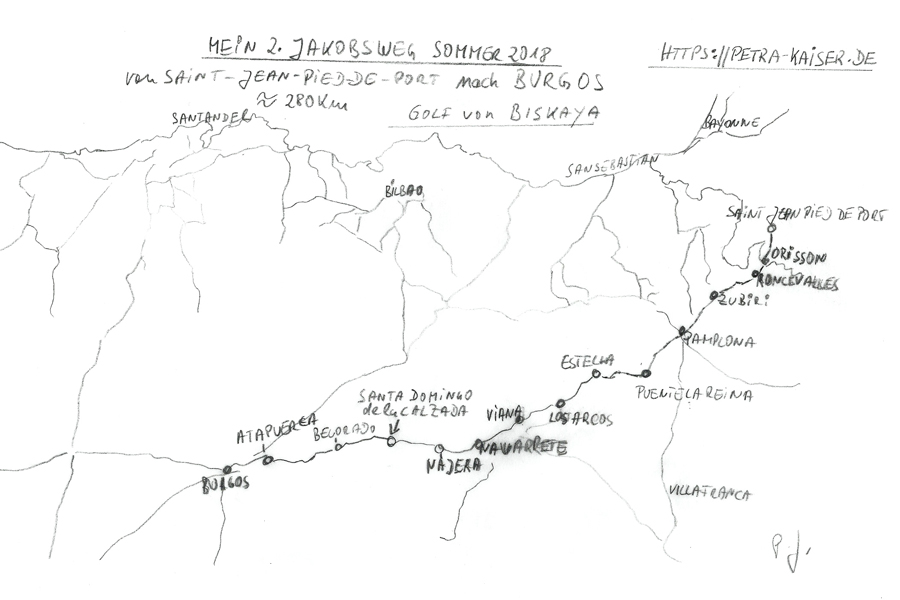 MEIN 2. JAKOBSWEG SOMMER 2018
HTTPS://PETRA-KAISER.DE
von SAINT-JEAN-PIED-DE-PORT nach BURGOS
≈ 280 Km
GOLF von BISKAYA
SANTANDER
BAYONNE
SANSEBASTIAN
BILBAO
SAINT JEAN PIED DE PORT
ORISSON
RONCEVALLES
ZUBIRI
PAMPLONA
ESTELLA
PUENTELAREINA
SANTA DOMINGO
de la CALZADA
VIANA
LOSARCOS
ATAPUERCA
BELORADO
NAVARRETE
NAJERA
BURGOS
VILLAFRANCA